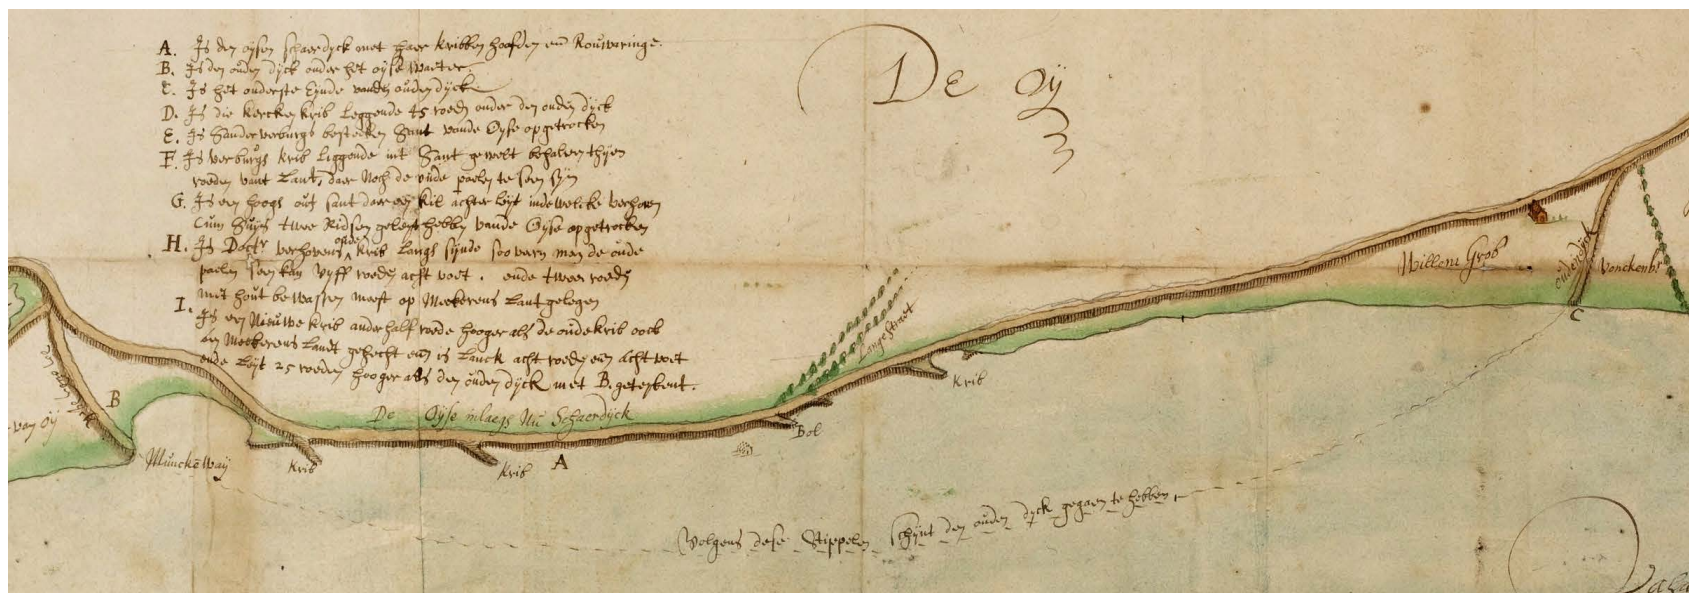 A. Is den oijsen schaerdyck met haer kribben hoofden en Rouwaringe.
B. Is den ouden dyck onder het oijse Waeter
C. Is het onderste Eynde vanden ouden dyck
D. Is die kercken krib Leggende 45 roeden onder den ouden dyck
E. Is Sander verburgs besteecken Sant vande Oyse opgetrocken
F. Is verburgs krib Liggende int Sant gewelt behalven thijen
roeden vant Lant, daer Noch de oude paelen te sien syn
G. Is een hoogs out sant daer een kil achter Leyt indewelcke verhoren
Cum Suys twee Ridsen geleyt hebben vande Oyse opgetrocken
H. Is Doctr verhorens oude krib Langs synde soo vern men de oude
paelen sien kan vyff roeden acht voet. ende twee roeden
met hout bewassen meest op Meekerens Lant gelegen
I. Is een Nieuwe krib anderhalf roede hooger als de oude krib oock
aen Meekerens Landt gehecht en is Lanck acht roeden een acht voet
ende Leyt 25 roeden hooger als den ouden dyck met B. geteykent.
De Oÿ
Willem Grob
ouden dijck
Vonckenb
C
Lange straet
Krib
De Oyse inlaegs Nu Schaerdyck
Bol
A
Krib
Krib
den ouden dyck
B
van oÿ
Munckewaÿ
Volgens dese Stippelen Schijnt den ouden dyck gegaen te hebben